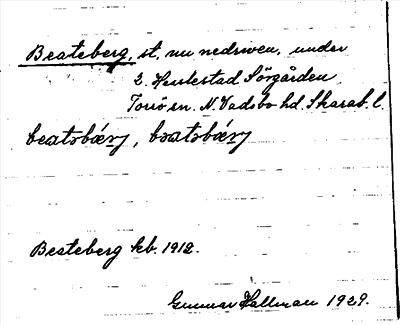 Beateberg, st, nu nedriven, under
2. Hulestad Sörgården
Torsö sn. N. Vadsbo hd. Skarab. l.
Beateberg kb. 1912.
Gunnar Hallman 1929.